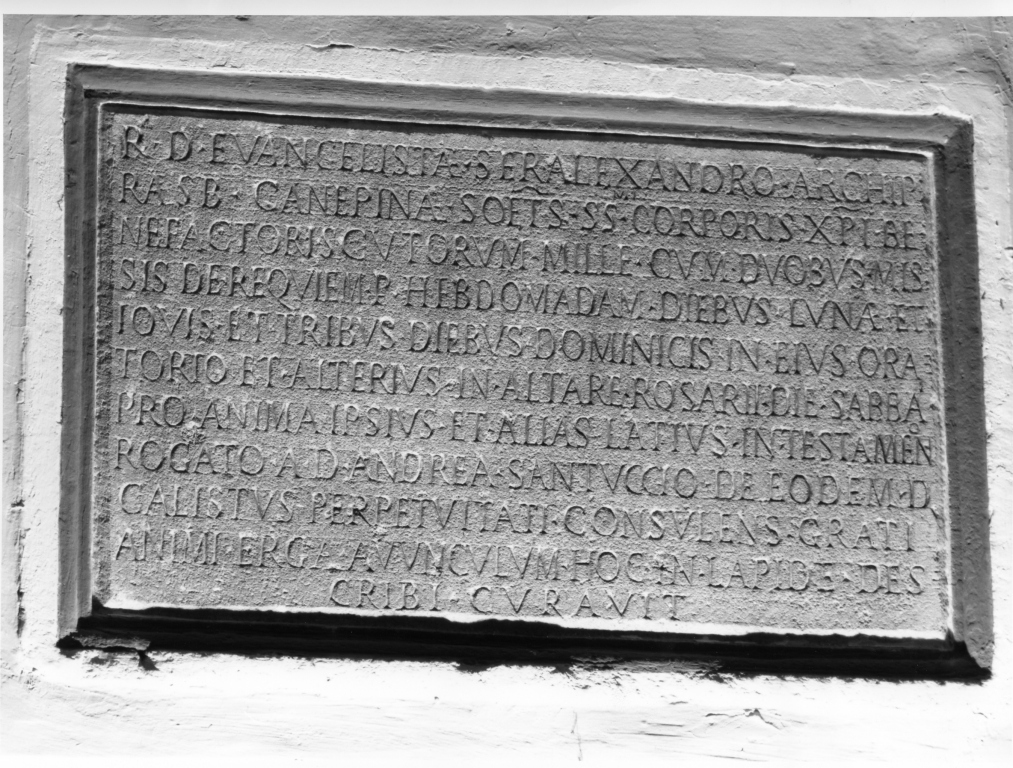 R · D · EVANGELISTA · SER ALEXANDRO · ARCHIP ·
RA · S · B · CANEPINÆ · SOEŢS · SS · CORPORIS · XPI · BE
NEFACTORIS SCVTORVM · MILLE · CVM · DVOBVS · MIS
SIS DE REQVIEM · P · HEBDOMADAM · DIEBVS · LVNÆ · ET
IOVIS · ET · TRIBVS · DIEBVS · DOMINICIS · IN · EIVS · ORA
TORIO · ET · ALTERIVS · IN · ALTARE · ROSARII · DIE · SABBA ·
PRO · ANIMA · IPSIVS · ET · ALIAS · LATIVS · IN · TESTAMEÑ
ROGATO · A · D · ANDREA · SANTVCCIO · DE · EODEM · D
CALISTVS · PERPETVITATI · CONSVLENS · GRATI
ANIMI · ERGA · AVVNCVLVM · HOC · IN · LAPIDE · DES
CRIBI · CVRAVIT